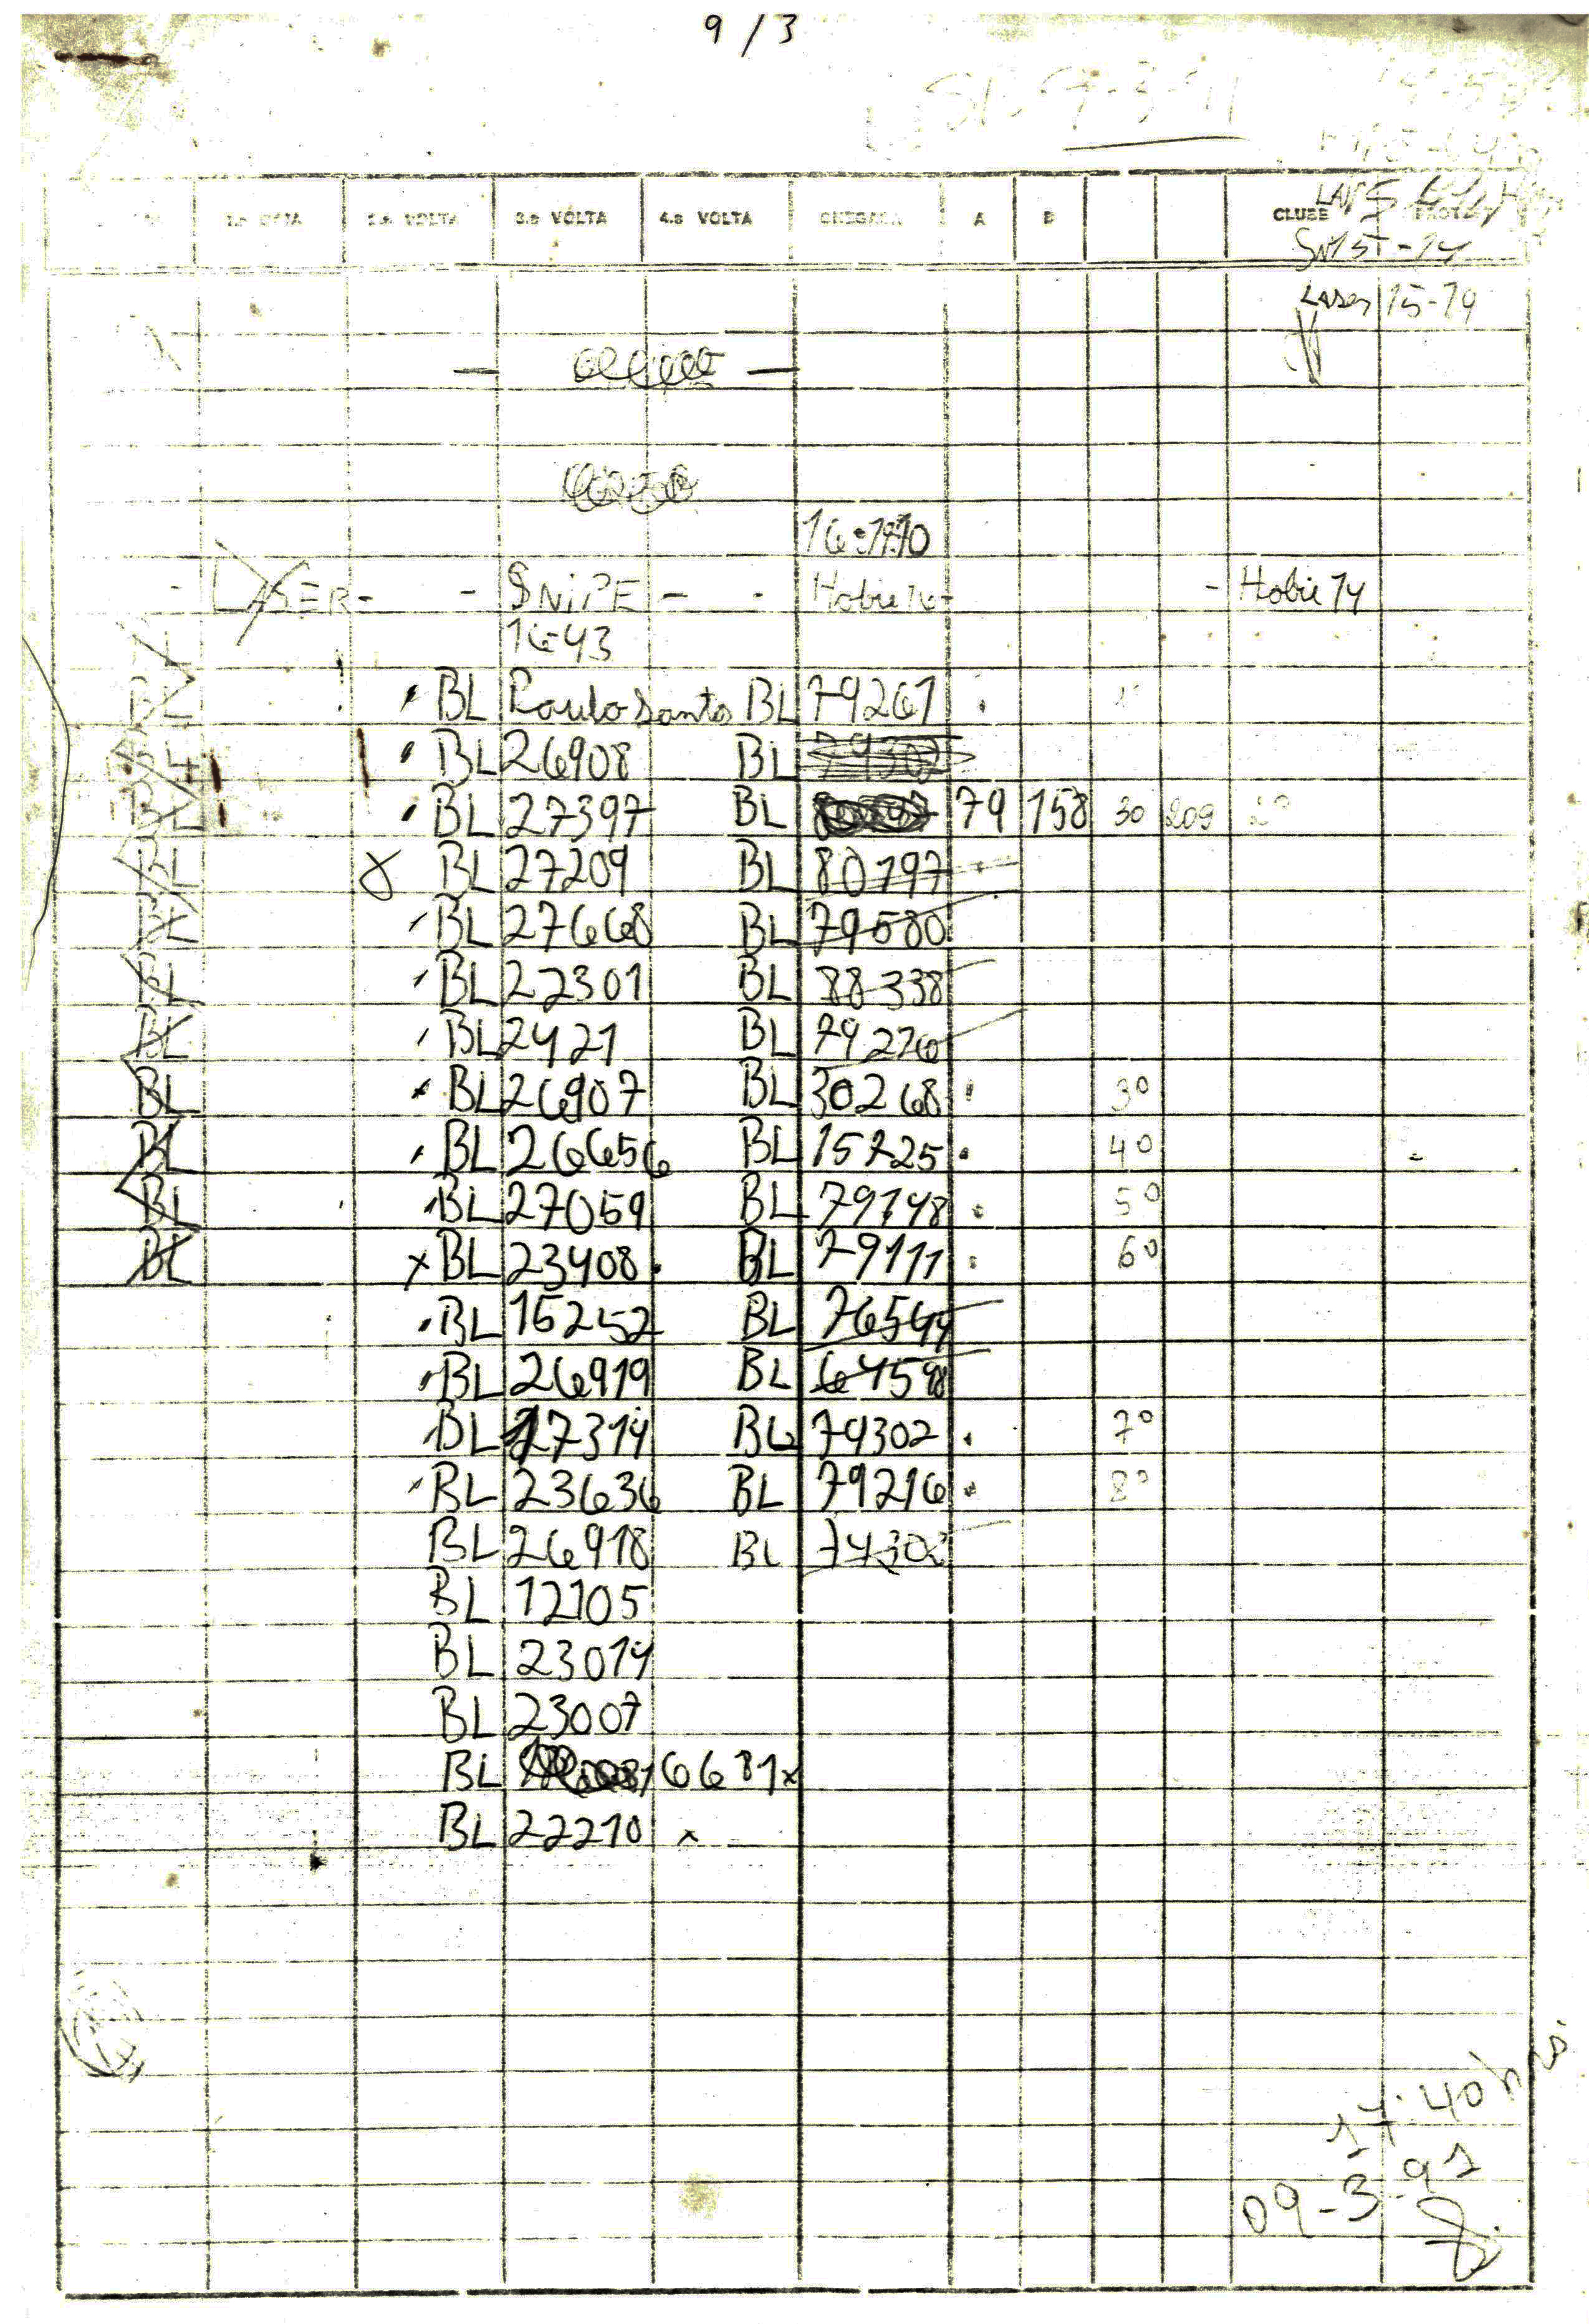 9 / 3
3.a VOLTA 4.a VOLTA CHEGADA A B CLUBE
Laser 15-19
LASER - - SNIPE - - Hobie 16 - - Hobie 14
16-43
BL Paulo Santos BL 79261
BL 26908 BL 79302
BL 27397 BL 79 158 30 209 2º
BL 27209 BL 80797
BL BL 27668 BL 79580
BL BL 22301 BL 88338
BL BL 2421 BL 79276
BL BL 26907 BL 30268 3º
BL BL 26656 BL 15725 4º
BL BL 27059 BL 79148 5º
BL x BL 23408 BL 79111 6º
BL 15252 BL 76544
BL 26919 BL 64598
BL 27314 BL 74302 7º
BL 23636 BL 79216 8º
BL 26918 BL 74302
BL 12105
BL 23014
BL 23007
BL 16681 x
BL 22210 x
17:40 hs
09-3-91